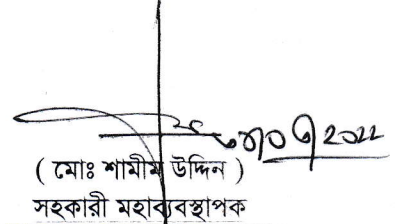 ( মোঃ শামীম উদ্দিন )
সহকারী মহাব্যবস্থাপক